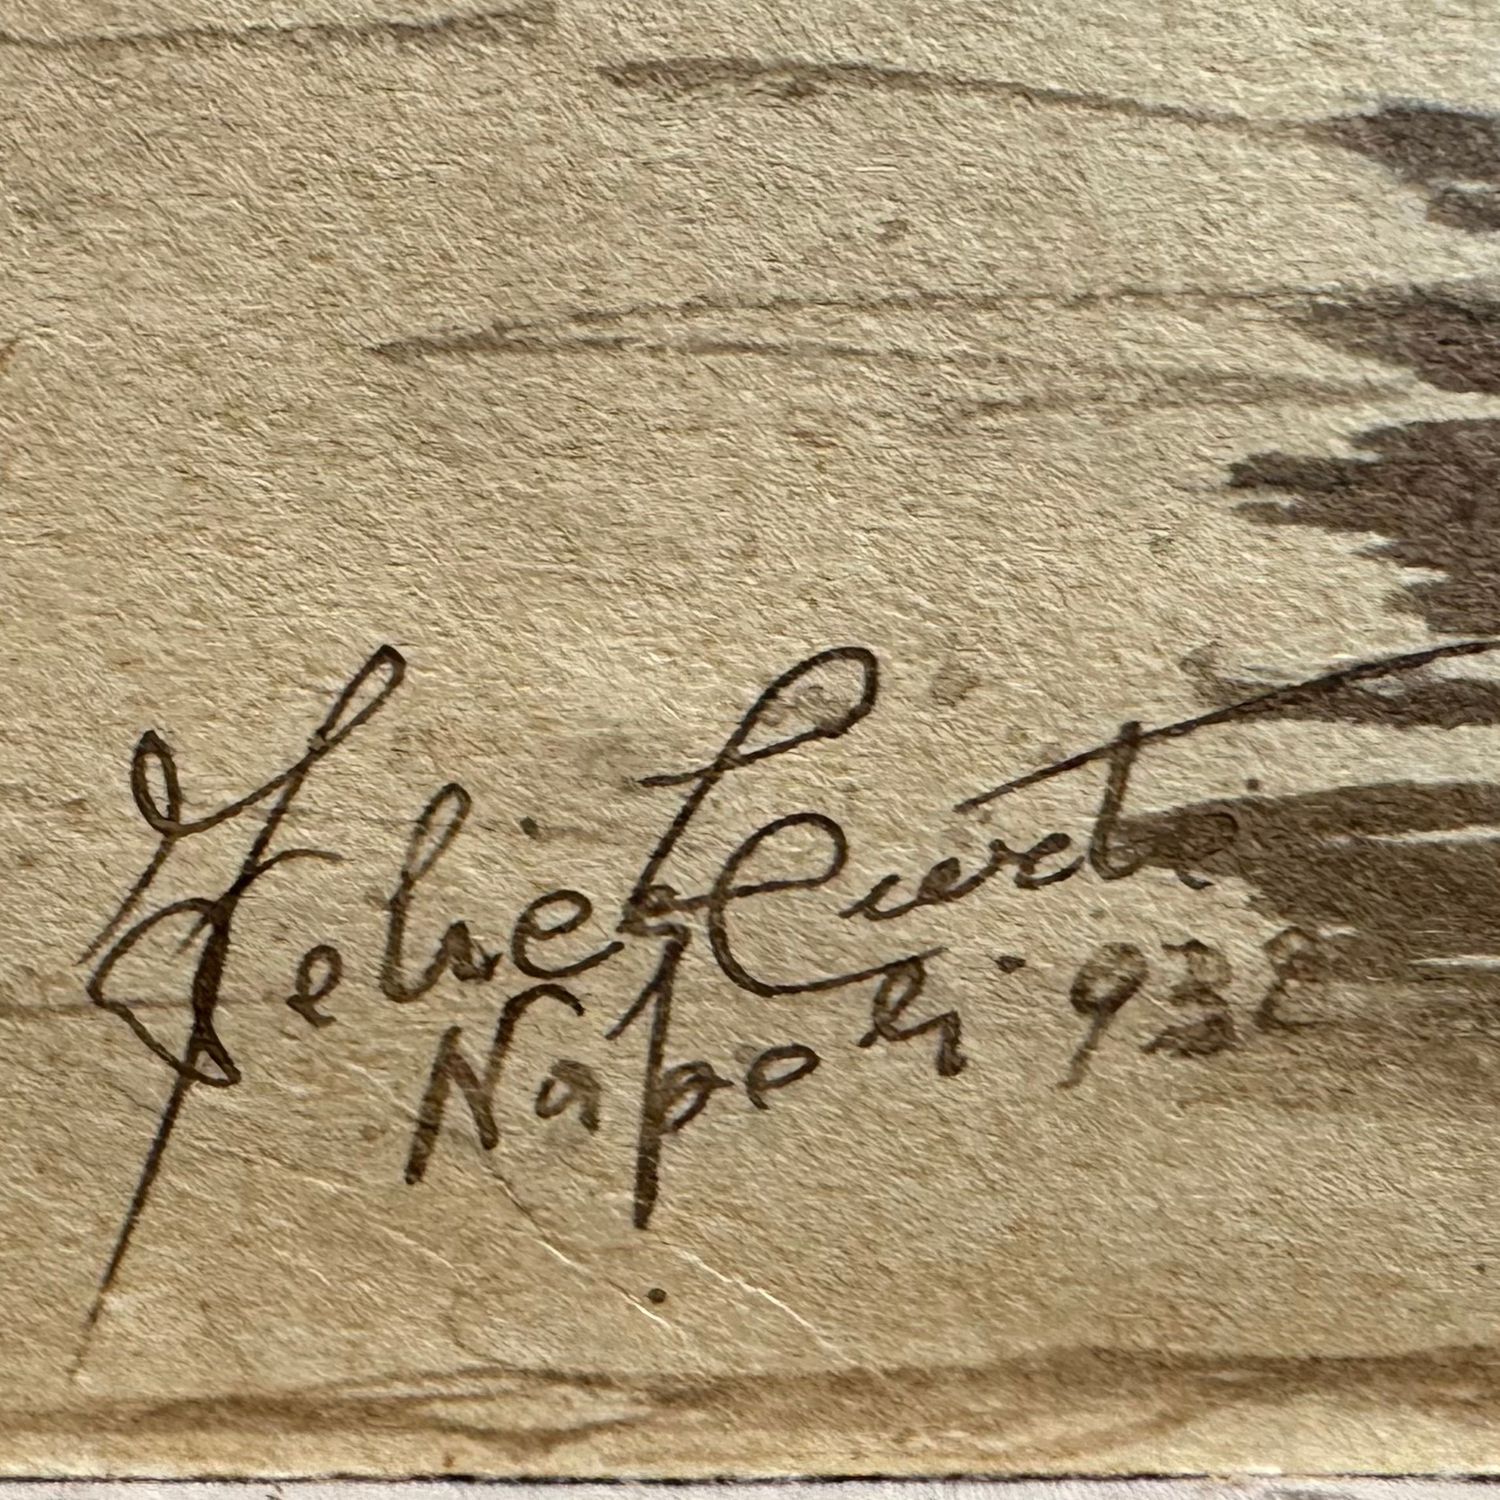 Felice Curti
Napoli 932